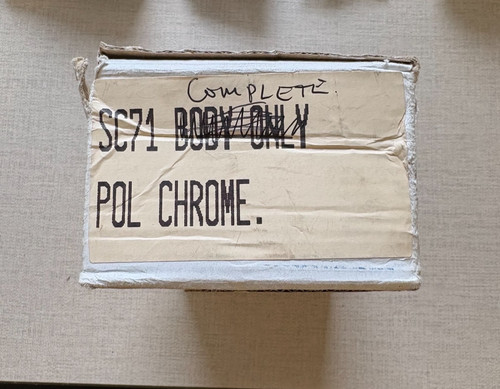 COMPLETE.
SC71 BODY ONLY
POL CHROME.